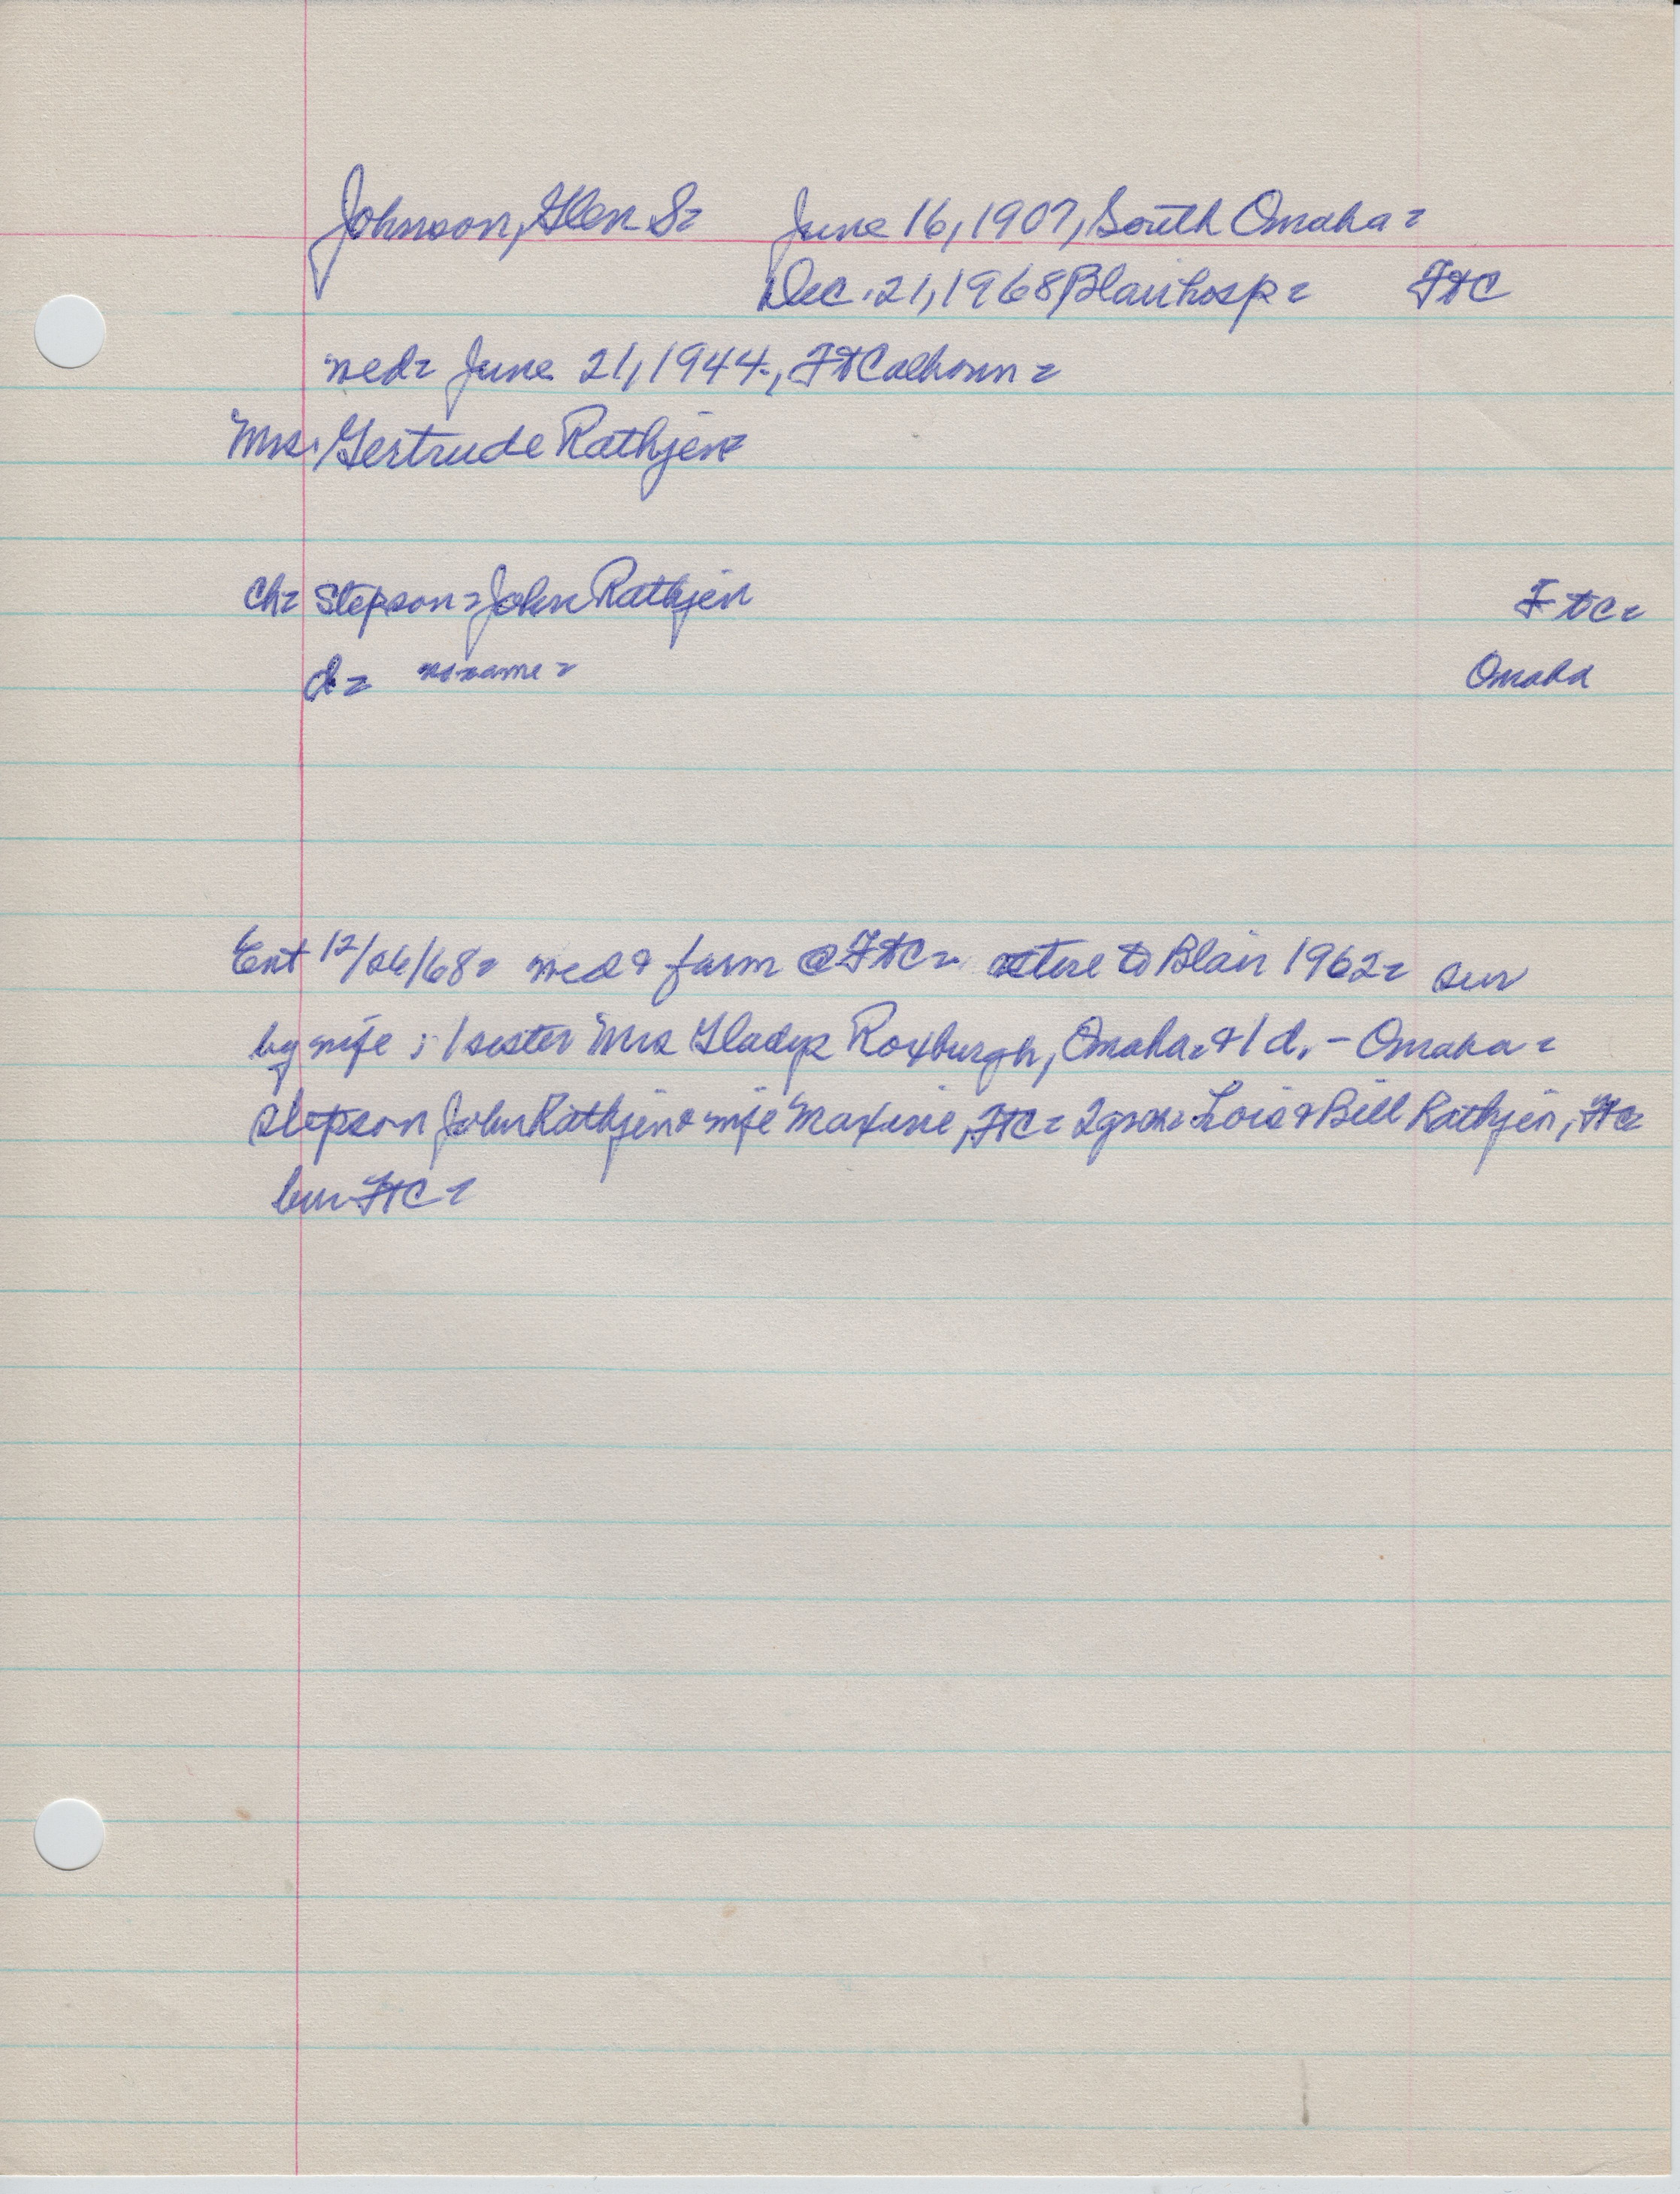 Johnson, Glen S= June 16, 1907, South Omaha=
Dec. 21, 1968 Blair hosp= FtC
wed= June 21, 1944, Ft Calhoun=
Mrs. Gertrude Rathjen=
Ch= Stepson= John Rathjen FtC=
d= no name= Omaha
Ent 12/26/68= wed & farm @ FtC= retire to Blair 1962= sur
by wife; 1 sister Mrs Gladys Roxburgh, Omaha= & 1 d. - Omaha=
stepson John Rathjen & wife Maxine, FtC= 2 grch= Lois & Bill Rathjen, FtC=
bur FtC=